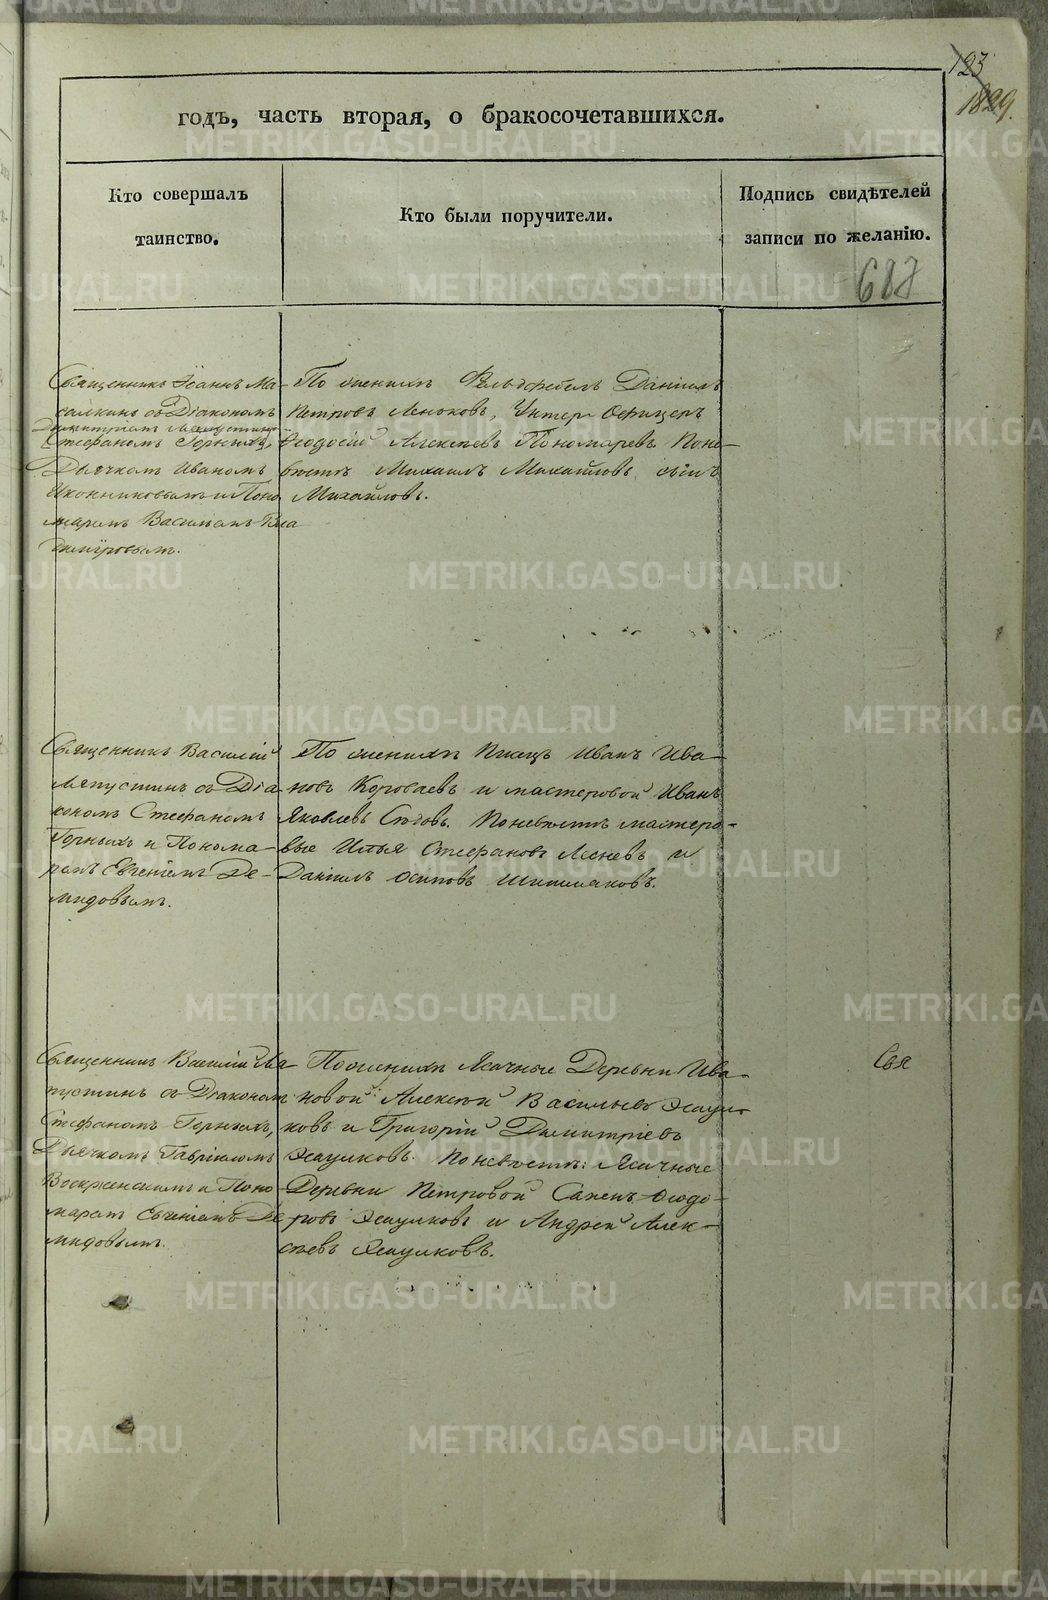 123
1829.
годъ, часть вторая, о бракосочетавшихся.
Кто совершалъ
таинство.
Кто были поручители.
Подпись свидѣтелей
записи по желанію.
687
Священникъ Іоаннъ Ма-
съ Діакономъ
Стефаномъ Горныхъ,
Дьячкомъ Иваномъ
Иконниковымъ и Поно
маремъ Василіемъ Вла
диміровымъ.
По женихѣ Фельдфебель Даніилъ
Петровъ Леноковъ, Унтер-Офицеръ
Ѳеодосій Алексѣевъ Пономаревъ. Поне-
вѣстѣ Михаилъ Михайловъ, сынъ
Михайловъ.
Священникъ Василій
Ляпустинъ съ Діа
кономъ Стефаномъ
Горныхъ и Понома-
ремъ Евгеніемъ Де-
мидовымъ.
По женихѣ Писецъ Иванъ Ива-
новъ Короваевъ и мастеровой Иванъ
Яковлевъ Поневѣстѣ мастеро-
вые Илья Стефановъ и
Даніилъ Осиповъ Шишмаковъ.
Священникъ Василій Ля
пустинъ съ Діакономъ
Стефаномъ Горныхъ,
Дьячкомъ Гавріиломъ
Воскресенскимъ и Поно
маремъ Евгеніемъ Де
мидовымъ.
Поженихѣ Ясачные Деревни Ива-
новой Алексѣй Васильевъ Ясаул-
ковъ и Григорій Димитріевъ
Ясаулковъ. Поневѣстѣ: Ясачные
Деревни Петровой Ѳеодо-
ровъ Ясаулковъ и Андрей Алек-
сѣевъ Ясаулковъ.
Свя
METRIKI.GASO-URAL.RU